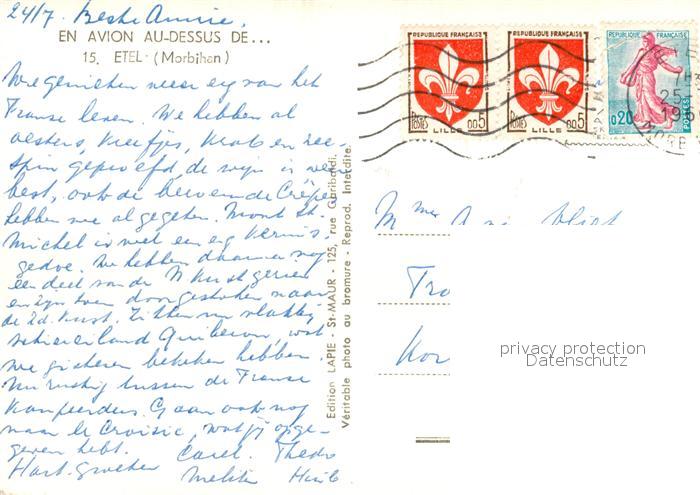 24/7. Beste Annie,
EN AVION AU-DESSUS DE...
15. ETEL (Morbihan)
We genieten weer erg van het
Franse leven. We hebben al
oesters, kreefjes, krab en zee-
spin geproefd, de wijn is weer
best, ook de beroemde Crêpes
hebben we al gegeten. Mont St.
Michel is wel een erg kermis-
gedoe. We hebben daarna nog
een deel van de N kust gezien
en zijn toen doorgestoken naar
de Zd. kust. Zitten nu vlakbij
schiereiland Quiberon, wat
we gisteren bekeken hebben.
Nu rustig tussen de Franse
kampeerders. Gaan ook nog
naar le Croisic, wat jij opge-
geven hebt.
Hart. groeten
Carel. Thedo
Edition LAPIE - St-MAUR - 125, rue Garibaldi.
Véritable photo au bromure - Reprod. Interdite.
REPUBLIQUE FRANÇAISE
POSTES 0,05
LILLE
REPUBLIQUE FRANÇAISE
POSTES 0,05
LILLE
REPUBLIQUE FRANÇAISE
0,20 POSTES
25-
19
Mme
Tro
Kor
privacy protection
Datenschutz